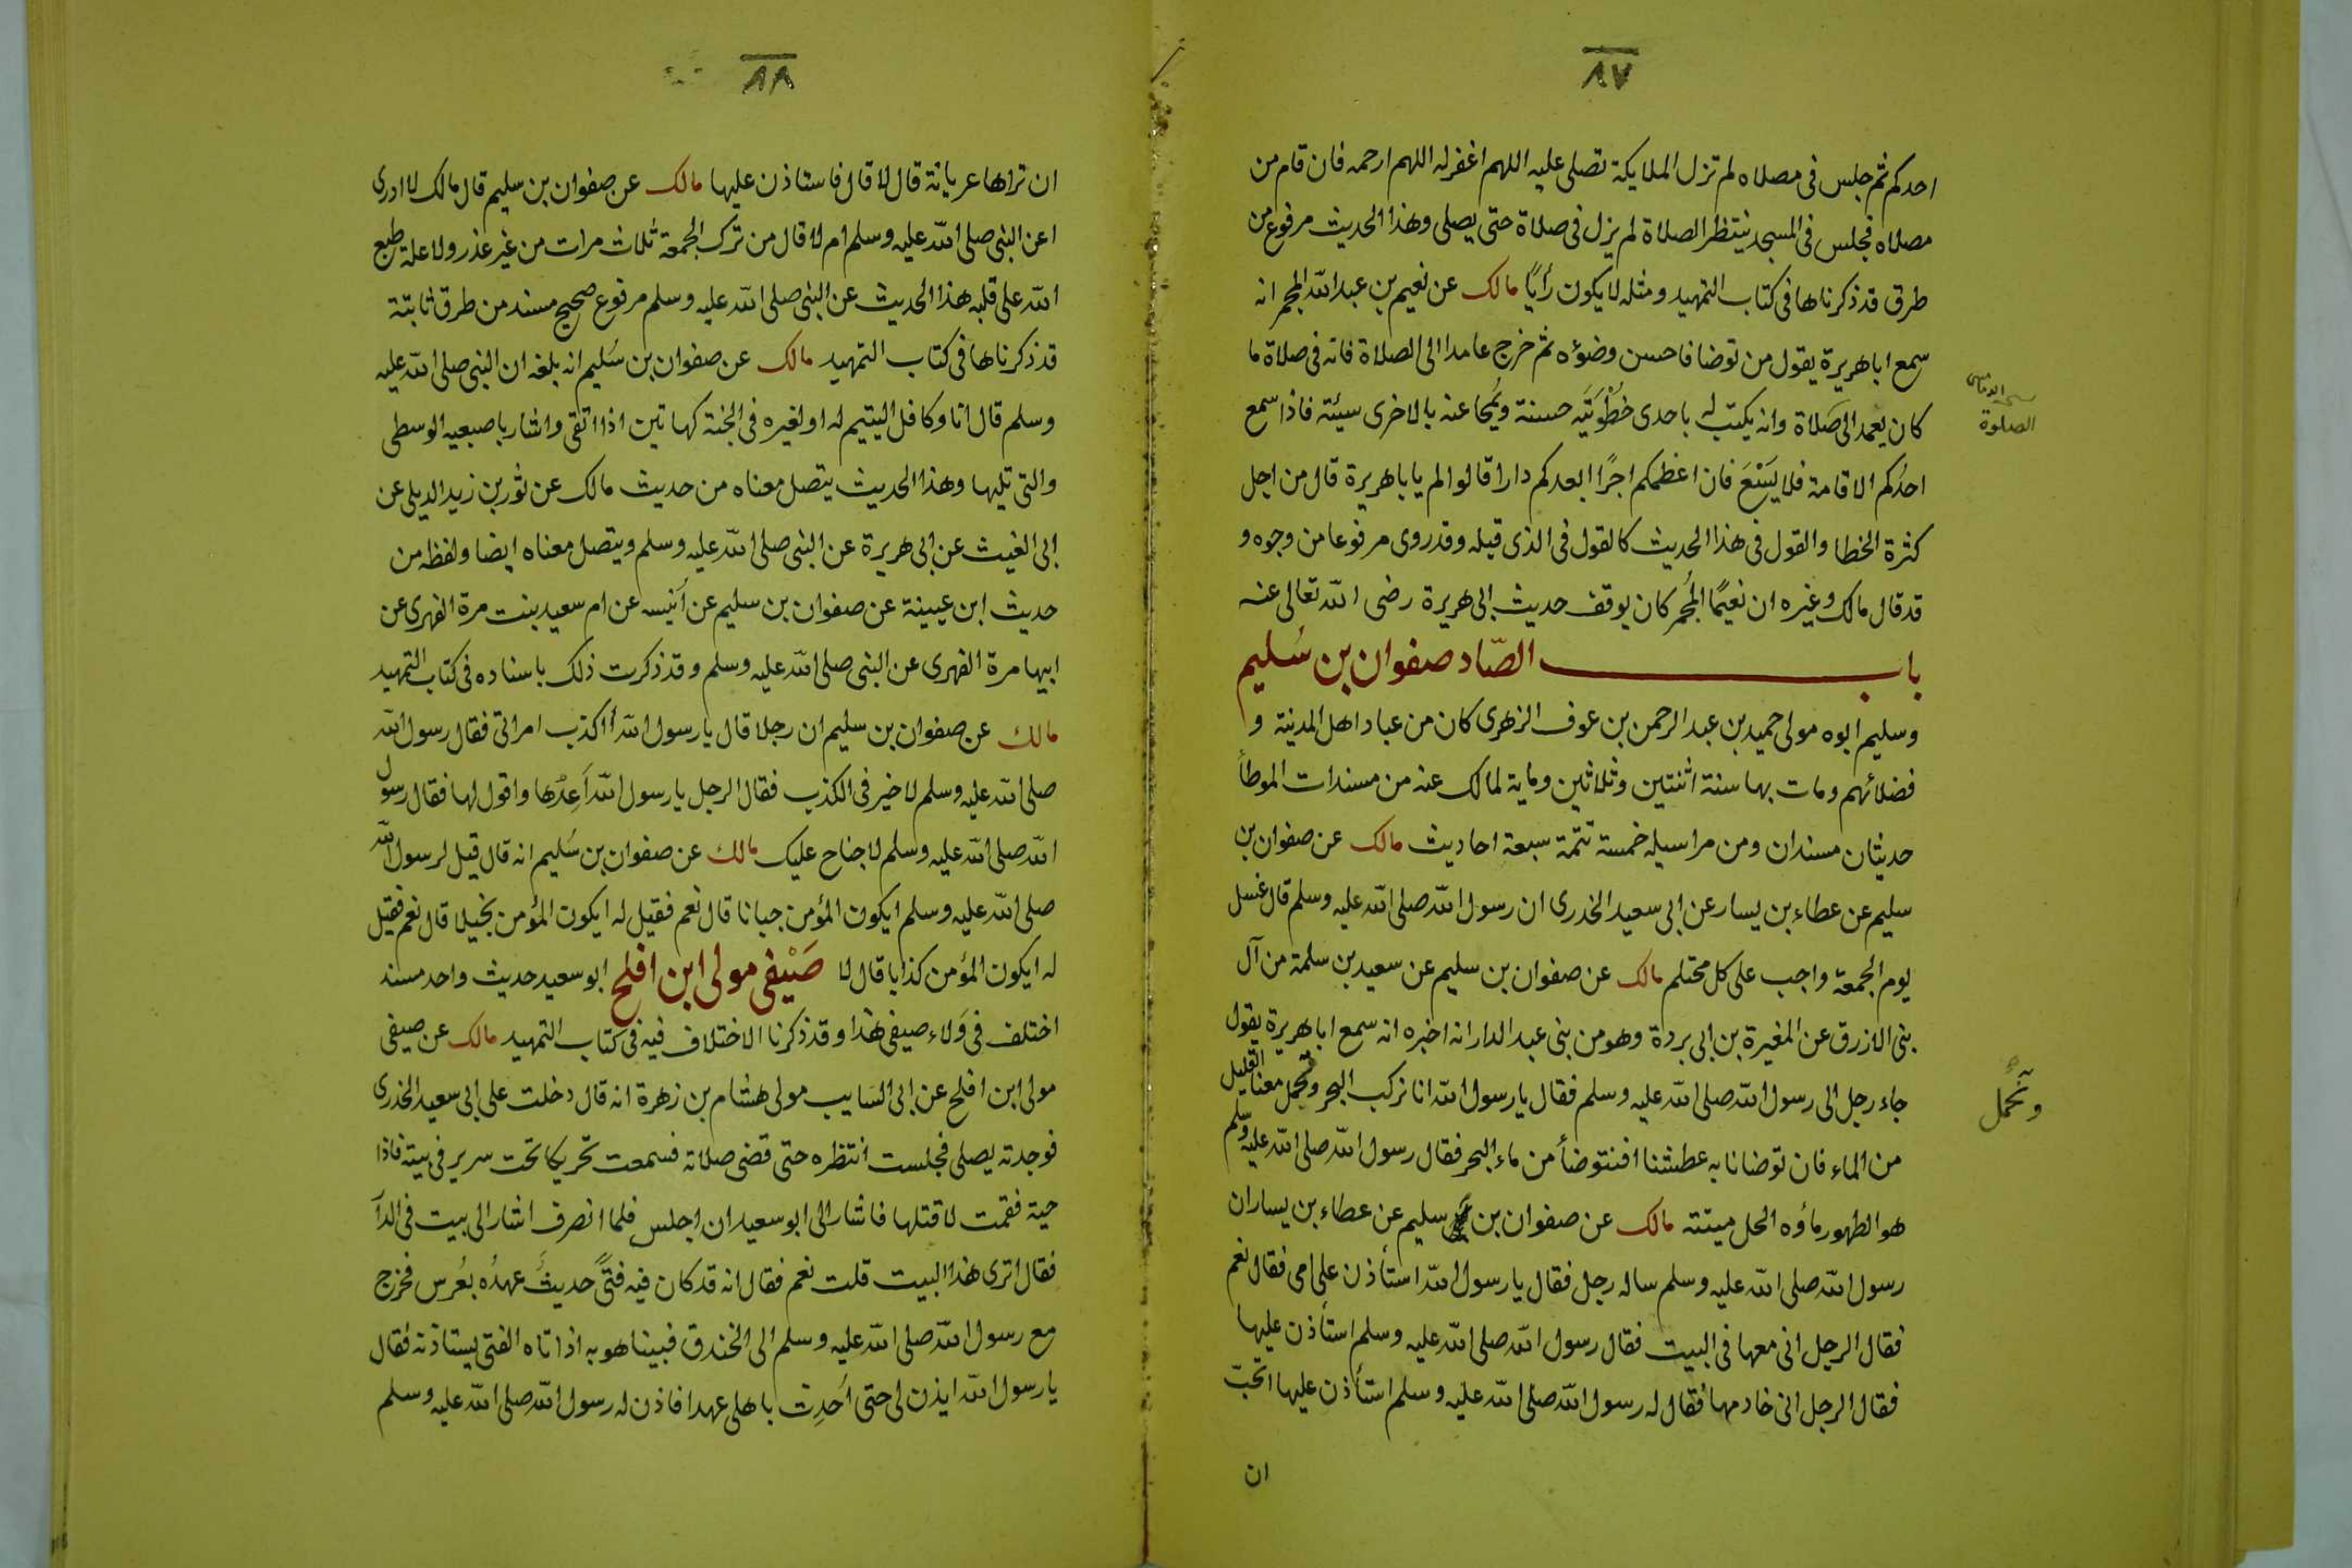 ٨٧
احدكم ثم جلس فى مصلاه لم تزل الملايكة تصلى عليه اللهم اغفر له اللهم ارحمه فان قام من
مصلاه فجلس فى المسجد ينتظر الصلاة لم يزل فى صلاة حتى يصلى وهذا الحديث مرفوع من
طرق قد ذكرناها فى كتاب التمهيد ومثله لا يكون رأيًا مالك عن نعيم بن عبد الله المجمر انه
سمع ابا هريرة يقول من توضا فاحسن وضوءه ثم خرج عامدا الى الصلاة فانه فى صلاة ما
كان يعمد الى صلاة وانه يكتب له باحدى خُطْوَتَيه حسنة ويُمحا عنه بالاخرى سيئة فاذا سمع
الصلوة
احدُكم الاقامة فلا يَسْعَ فان اعظمكم اجرًا ابعدكم دارا قالوا لم يا باهريرة قال من اجل
كثرة الخطا والقول فى هذا الحديث كالقول فى الذى قبله وقد روى مرفوعا من وجوه و
قد قال مالك وغيره ان نعيمًا المُجمر كان يوقف حديث ابى هريرة رضى الله تعالى عنه
باب الصّاد صفوان بن سُليم
وسليم ابوه مولى حميد بن عبد الرحمن بن عوف الزهرى كان من عباد اهل المدينة و
فضلائهم ومات بها سنة اثنتين وثلاثين وماية لمالك عنه من مسندات الموطأ
حديثان مسندان ومن مراسيله خمسة تتمة سبعة احاديث مالك عن صفوان بن
سليم عن عطاء بن يسار عن ابى سعيد الخدرى ان رسول الله صلى الله عليه وسلم قال غسل
يوم الجمعة واجب على كل محتلم مالك عن صفوان بن سليم عن سعيد بن سلمة من آل
بنى الازرق عن المغيرة بن ابى بردة وهو من بنى عبد الدار انه اخبره انه سمع ابا هريرة يقول
جاء رجل الى رسول الله صلى الله عليه وسلم فقال يا رسول الله انا نركب البحر ونحمل معنا القليل
ونحمل
من الماء فان توضانا به عطشنا افنتوضأ من ماء البحر فقال رسول الله صلى الله عليه وسلم
هو الطهور ماؤه الحل ميتته مالك عن صفوان بن سليم عن عطاء بن يسار ان
رسول الله صلى الله عليه وسلم ساله رجل فقال يا رسول الله استأذن على امى فقال نعم
فقال الرجل انى معها فى البيت فقال رسول الله صلى الله عليه وسلم استأذن عليها
فقال الرجل انى خادمها فقال له رسول الله صلى الله عليه وسلم استأذن عليها اتحبّ
ان
٨٨
ان تراها عريانة قال لا قال فاستاذن عليها مالك عن صفوان بن سليم قال مالك لا ادرى
اعن النبى صلى الله عليه وسلم ام لا قال من ترك الجمعة ثلاث مرات من غير عذر ولا علة طبع
الله على قلبه هذا الحديث عن النبى صلى الله عليه وسلم مرفوع صحيح مسند من طرق ثابتة
قد ذكرناها فى كتاب التمهيد مالك عن صفوان بن سُليم انه بلغه ان النبى صلى الله عليه
وسلم قال انا وكافل اليتيم له او لغيره فى الجنة كهاتين اذا اتقى واشار باصبعيه الوسطى
والتى تليها وهذا الحديث يتصل معناه من حديث مالك عن ثور بن زيد الديلى عن
ابى الغيث عن ابى هريرة عن النبى صلى الله عليه وسلم ويتصل معناه ايضا ولفظه من
حديث ابن عيينة عن صفوان بن سليم عن أنيسه عن ام سعيد بنت مرة الفهرى عن
ابيها مرة الفهرى عن النبى صلى الله عليه وسلم وقد ذكرت ذلك باسناده فى كتاب التمهيد
مالك عن صفوان بن سليم ان رجلا قال يا رسول الله أاكذب امراتى فقال رسول الله
صلى الله عليه وسلم لا خير فى الكذب فقال الرجل يا رسول الله أَعِدُها واقول لها فقال رسول
الله صلى الله عليه وسلم لا جناح عليك مالك عن صفوان بن سُليم انه قال قيل لرسول الله
صلى الله عليه وسلم ايكون المؤمن جبانا قال نعم فقيل له ايكون المؤمن بخيلا قال نعم فقيل
له ايكون المؤمن كذابا قال لا صَيْفى مولى ابن افلح ابو سعيد حديث واحد مسند
اختلف فى وَلاء صيفى هذا وقد ذكرنا الاختلاف فيه فى كتاب التمهيد مالك عن صيفى
مولى ابن افلح عن ابى السايب مولى هشام بن زهرة انه قال دخلت على ابى سعيد الخدرى
فوجدته يصلى فجلست انتظره حتى قضى صلاته فسمعت تحريكا تحت سرير فى بيته فاذا
حية فقمت لاقتلها فاشار الى ابو سعيد ان اجلس فلما انصرف اشار الى بيت فى الدار
فقال اترى هذا البيت قلت نعم فقال انه قد كان فيه فتىً حديثُ عهدُه بعُرس فخرج
مع رسول الله صلى الله عليه وسلم الى الخندق فبينا هو به اذ اتاه الفتى يستاذنه فقال
يا رسول الله ايذن لى حتى اُحدِث باهلى عهدا فاذن له رسول الله صلى الله عليه وسلم